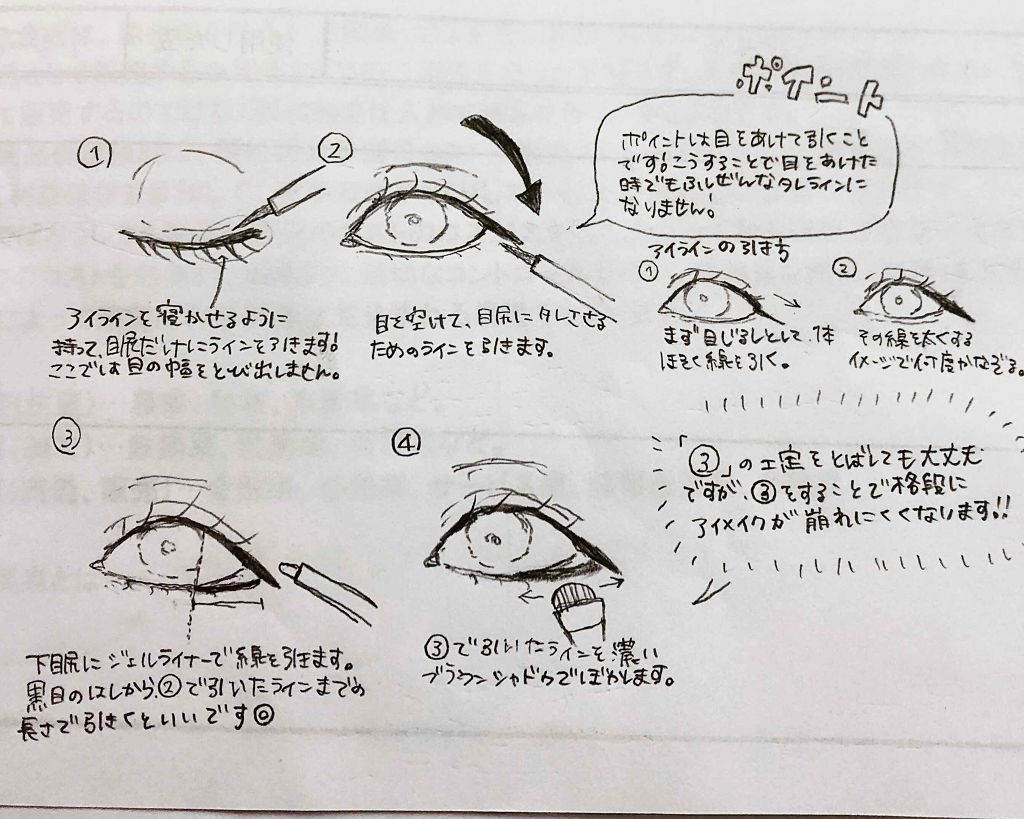 ポイント
ポイントは目をあけて引くこと
です!こうすることで目をあけた
時でもふしぜんなタレラインに
なりません!
①
アイラインを寝かせるように
持って、目尻だけにラインを引きます!
ここでは目の中をとび出しません。
②
目を空けて、目尻にタレさせる
ためのラインを引きます。
アイラインの引き方
①
まず目じるしとして、1本
ほそく線を引く。
②
その線を太くする
イメージで何度かなぞる。
③
下目尻にジェルライナーで線を引きます。
黒目のはしから、②で引いたラインまでの
長さで引きくといいです◎
④
③で引いたラインを濃い
ブラウンシャドウでぼかします。
「③」の工程をとばしても大丈夫
ですが、③をすることで格段に
アイメイクが崩れにくくなります!!